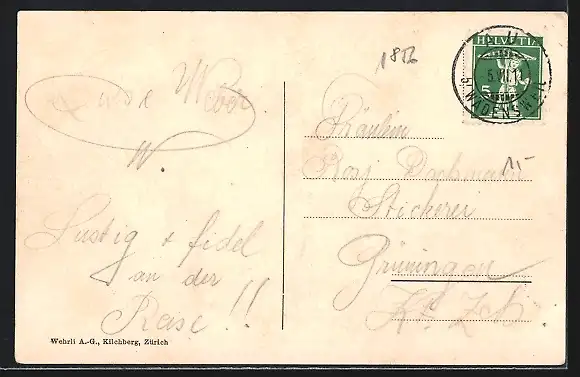 Weber
W.
Lustig + fidel
an der
Reise!!
Wehrli A.-G., Kilchberg, Zürich
HELVETIA
5
WÄDENSWEIL
Fräulein
Rosy
Stickerei
Grüningen
Kt. Zch